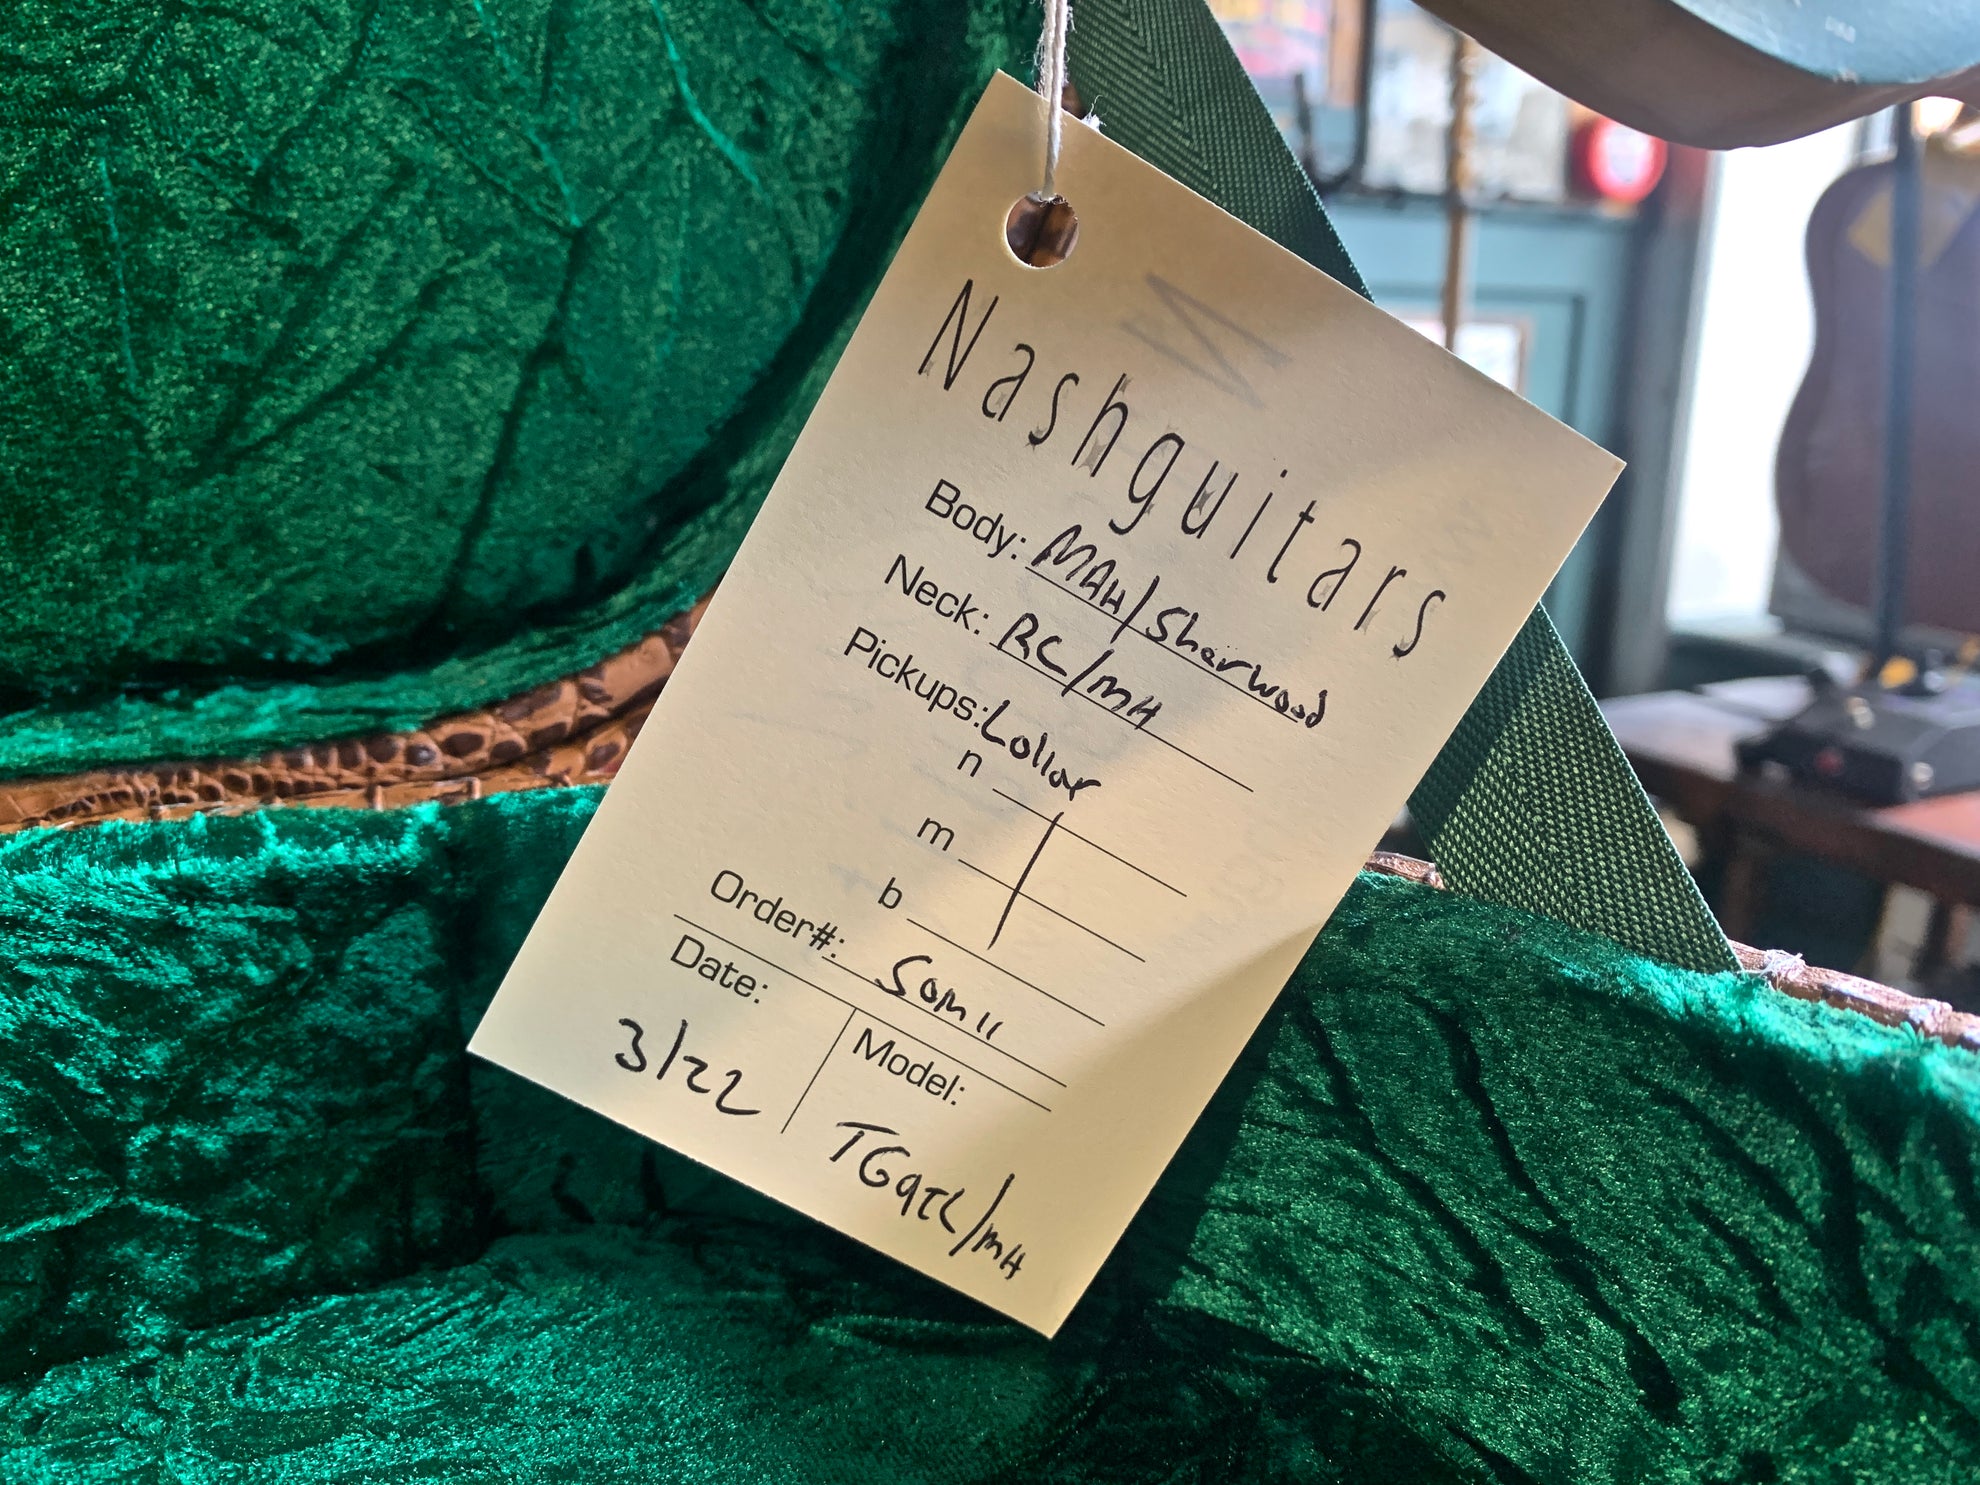 Nashguitars
Body: MAH/Sherwood
Neck: RC/MH
Pickups: Lollar
n
m
b
Order#: Som 11
Date:
3/22
Model: